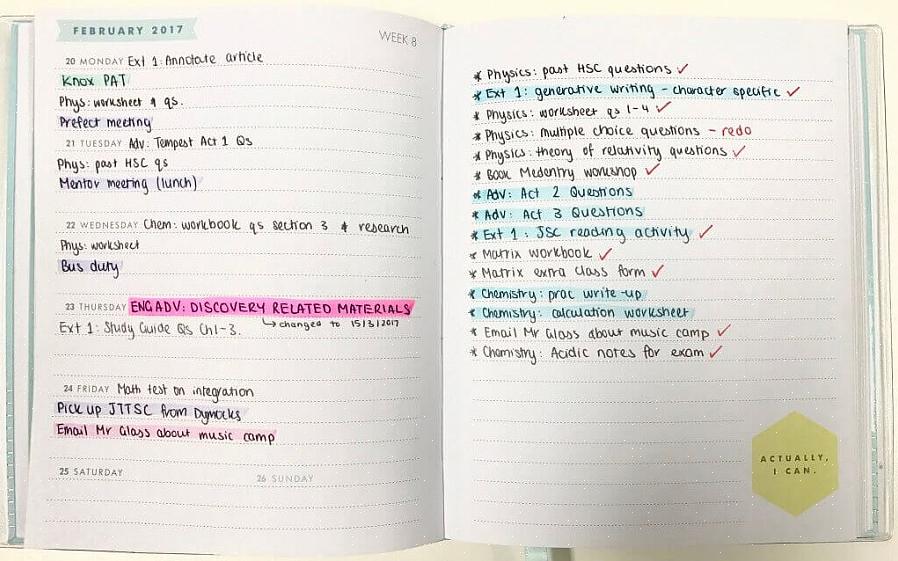 FEBRUARY 2017
WEEK 8
20 MONDAY Ext 1: Annotate article
Knox PAT
Phys: worksheet & qs.
Prefect meeting
21 TUESDAY Adv: Tempest Act 1 Qs
Phys: past HSC qs
Mentor meeting (lunch)
22 WEDNESDAY Chem: workbook qs section 3 & research
Phys: worksheet
Bus duty
23 THURSDAY ENG ADV: DISCOVERY RELATED MATERIALS
↳ changed to 15/3/2017
Ext 1: Study Guide Qs Ch1-3.
24 FRIDAY Math test on integration
Pick up JTTSC from Dymocks
Email Mr Glass about music camp
25 SATURDAY
26 SUNDAY
* Physics: past HSC questions ✓
* Ext 1: generative writing - character specific ✓
* Physics: worksheet qs 1-4 ✓
* Physics: multiple choice questions - redo
* Physics: theory of relativity questions ✓
* Book Medentry workshop ✓
* Adv: Act 2 Questions
* Adv: Act 3 Questions
* Ext 1: JSC reading activity ✓
* Matrix workbook ✓
* Matrix extra class form ✓
* Chemistry: prac write-up
* Chemistry: calculation worksheet
* Email Mr Glass about music camp ✓
* Chemistry: Acidic notes for exam ✓
ACTUALLY,
I CAN.